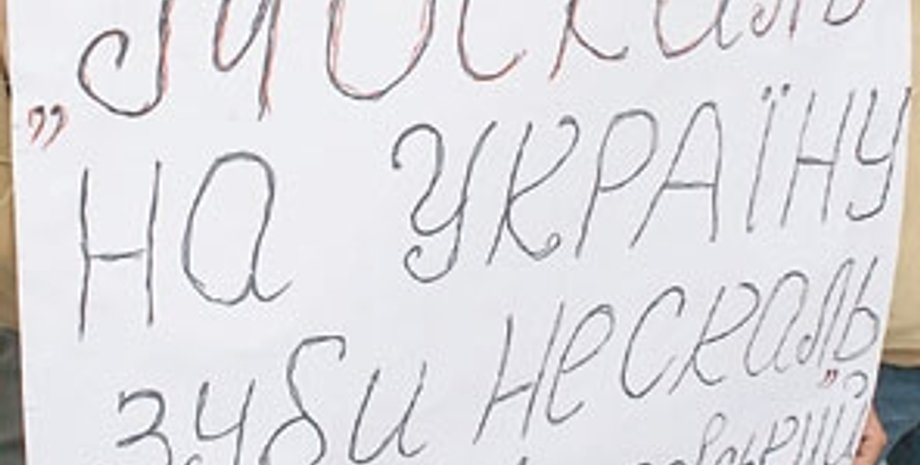 „Москаль
на УКРАЇНУ
зуби не скаль”